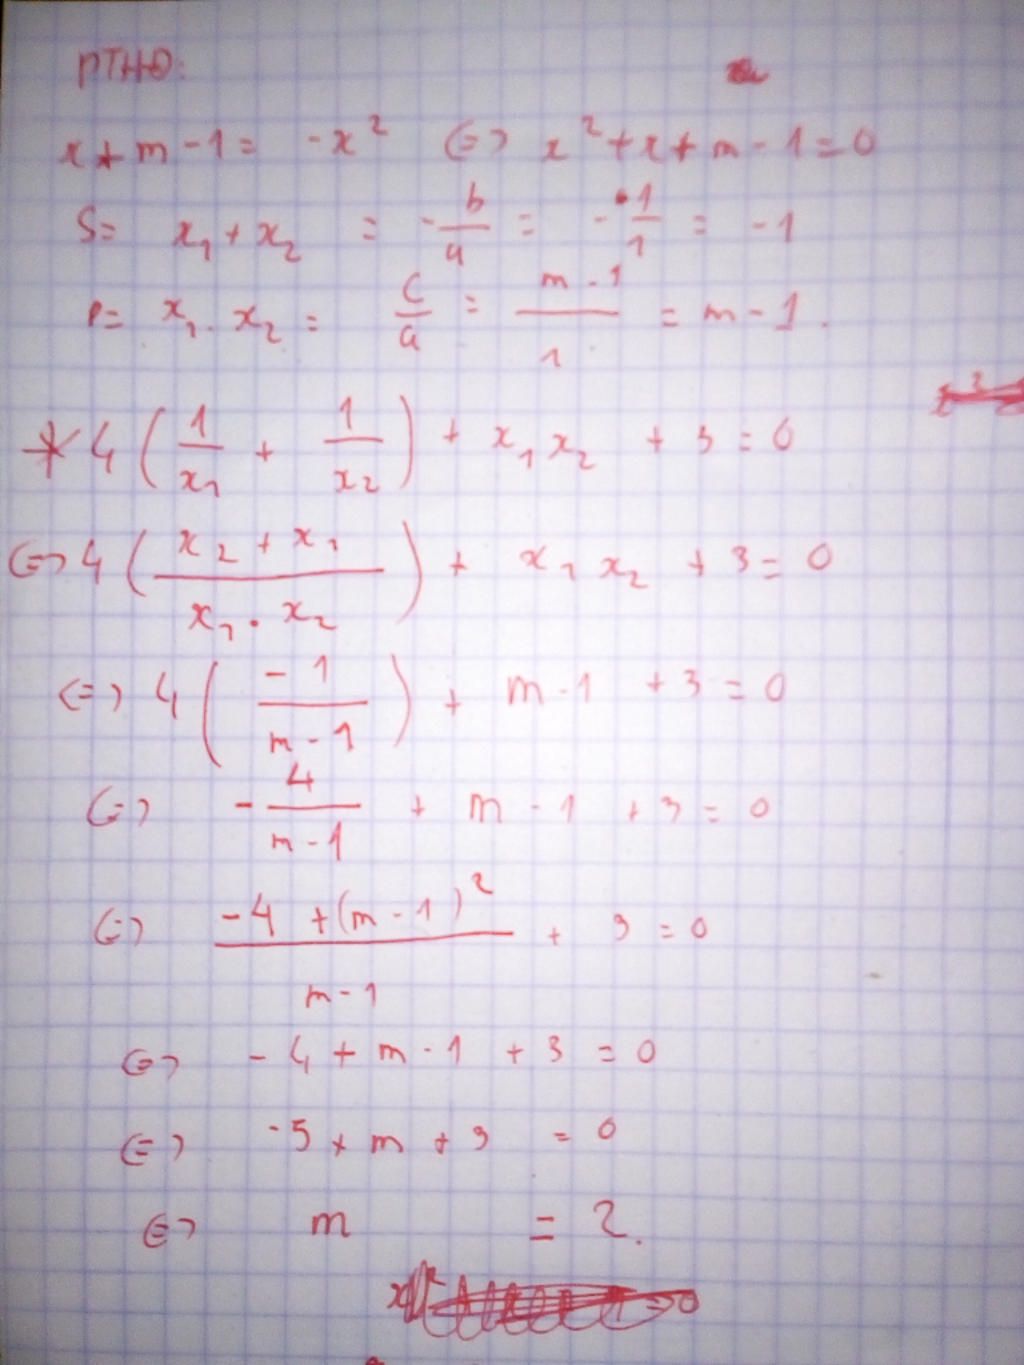 PTHĐ:
x + m - 1 = -x² (=) x² + x + m - 1 = 0
S = x₁ + x₂ = -b/a = -1/1 = -1
P = x₁ . x₂ = c/a = m - 1/1 = m - 1.
* 4 (1/x₁ + 1/x₂) + x₁ x₂ + 3 = 0
(=) 4 (x₂ + x₁/x₁ . x₂) + x₁ x₂ + 3 = 0
(=) 4 (-1/m - 1) + m - 1 + 3 = 0
(=) -4/m - 1 + m - 1 + 3 = 0
(=) -4 + (m - 1)²/m - 1 + 3 = 0
(=) - 4 + m - 1 + 3 = 0
(=) -5 + m + 3 = 0
(=) m = 2.